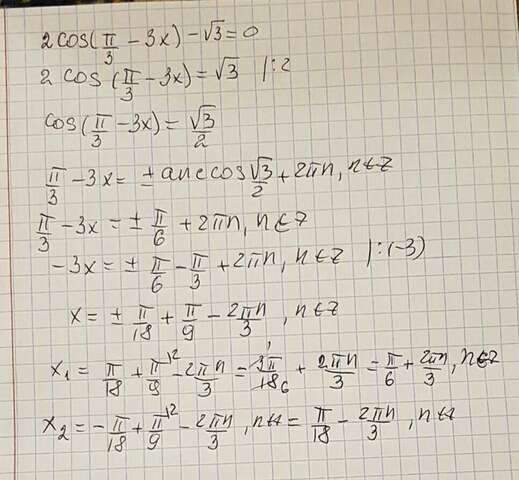 2cos(π/3 − 3x) − √3 = 0
2 cos (π/3 − 3x) = √3 |:2
cos(π/3 − 3x) = √3/2
π/3 − 3x = ± arccos √3/2 + 2πn, n∈Z
π/3 − 3x = ± π/6 + 2πn, n∈Z
−3x = ± π/6 − π/3 + 2πn, n∈Z |:(−3)
x = ± π/18 + π/9 − 2πn/3, n∈Z
x₁ = π/18 + π/9 \2 − 2πn/3 = 3π/18 6 + 2πn/3 = π/6 + 2πn/3, n∈Z
x₂ = −π/18 + π/9 \2 − 2πn/3, n∈Z = π/18 − 2πn/3, n∈Z